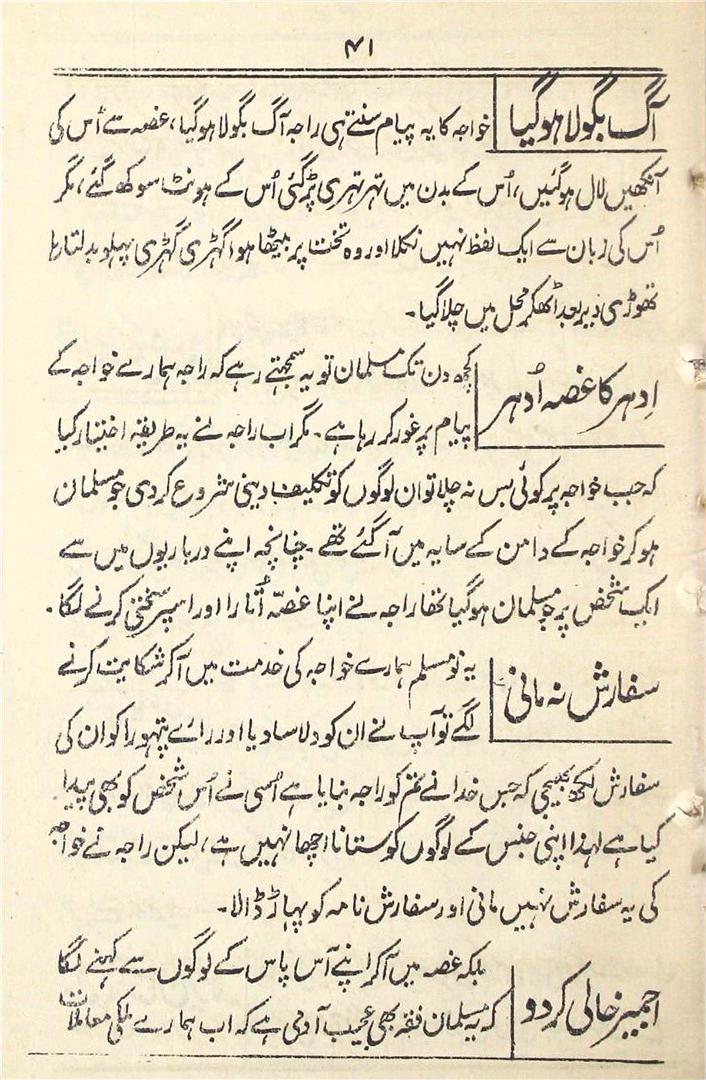 ۴۱
آگ بگولا ہوگیا
خواجہ کا یہ پیام سنتے ہی راجہ آگ بگولا ہوگیا، غصہ سے اُس کی
آنکھیں لال ہوگئیں، اُس کے بدن میں تہر تہری پڑگئی اُس کے ہونٹ سوکھ گئے، مگر
اُس کی زبان سے ایک لفظ نہیں نکلا اور وہ تخت پر بیٹھا ہوا گہڑی گہڑی پہلو بدلتا رہا
تھوڑی دیر بعد اُٹھکر محل میں چلا گیا۔
اِدہر کا غصہ اُدہر
کچھ دن تک مسلمان تو یہ سمجہتے رہے کہ راجہ ہمارے خواجہ کے
پیام پر غور کر رہا ہے۔ مگر اب راجہ نے یہ طریقہ اختیار کیا
کہ جب خواجہ پر کوئی بس نہ چلا تو ان لوگوں کو تکلیف دینی شروع کردی جو مسلمان
ہوکر خواجہ کے دامن کے سایہ میں آگئے تھے۔ چنانچہ اپنے درباریوں میں سے
ایک شخص پر جو مسلمان ہوگیا تھا راجہ نے اپنا غصّہ اُتارا اور اسپر سختی کرنے لگا۔
سفارش نہ مانی
یہ نو مسلم ہمارے خواجہ کی خدمت میں آکر شکایت کرنے
لگے تو آپ نے ان کو دلاسا دیا اور رائے پتہورا کو ان کی
سفارش لکھ بھیجی کہ جس خدا نے تم کو راجہ بنایا ہے اُسی نے اُس شخص کو بھی پیدا
کیا ہے لہذا اپنی جنس کے لوگوں کو ستانا اچھا نہیں ہے، لیکن راجہ نے خواجہ
کی یہ سفارش نہیں مانی اور سفارش نامہ کو پہاڑ ڈالا۔
اجمیر خالی کردو
بلکہ غصہ میں آکر اپنے آس پاس کے لوگوں سے کہنے لگا
کہ یہ مسلمان فقیر بھی عجیب آدمی ہے کہ اب ہمارے ملکی معاملات